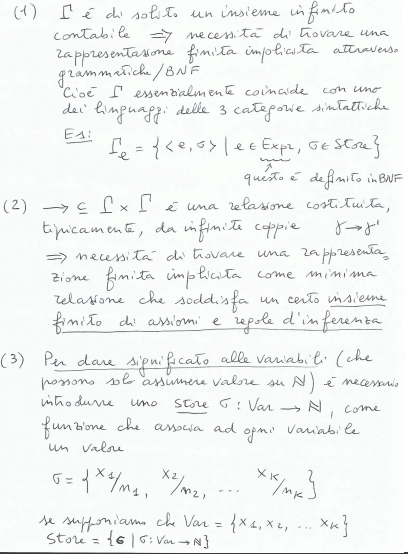 (1) Γ è di solito un insieme infinito
contabile ⇒ necessità di trovare una
rappresentazione finita implicita attraverso
grammatiche/BNF
Cioè Γ essenzialmente coincide con uno
dei linguaggi delle 3 categorie sintattiche
Es: Γe = {<e, σ> | e ∈ Expr, σ ∈ Store}
questo è definito in BNF
(2) → ⊆ Γ × Γ è una relazione costituita,
tipicamente, da infinite coppie γ → γ'
⇒ necessità di trovare una rappresenta=
zione finita implicita come minima
relazione che soddisfa un certo insieme
finito di assiomi e regole d'inferenza
(3) Per dare significato alle variabili (che
possono solo assumere valore su ℕ) è necessario
introdurre uno store σ : Var → ℕ, come
funzione che associa ad ogni variabile
un valore
σ = {x1/n1, x2/n2, ... xK/nK}
se supponiamo che Var = {x1, x2, ... xK}
Store = {σ | σ: Var → ℕ}